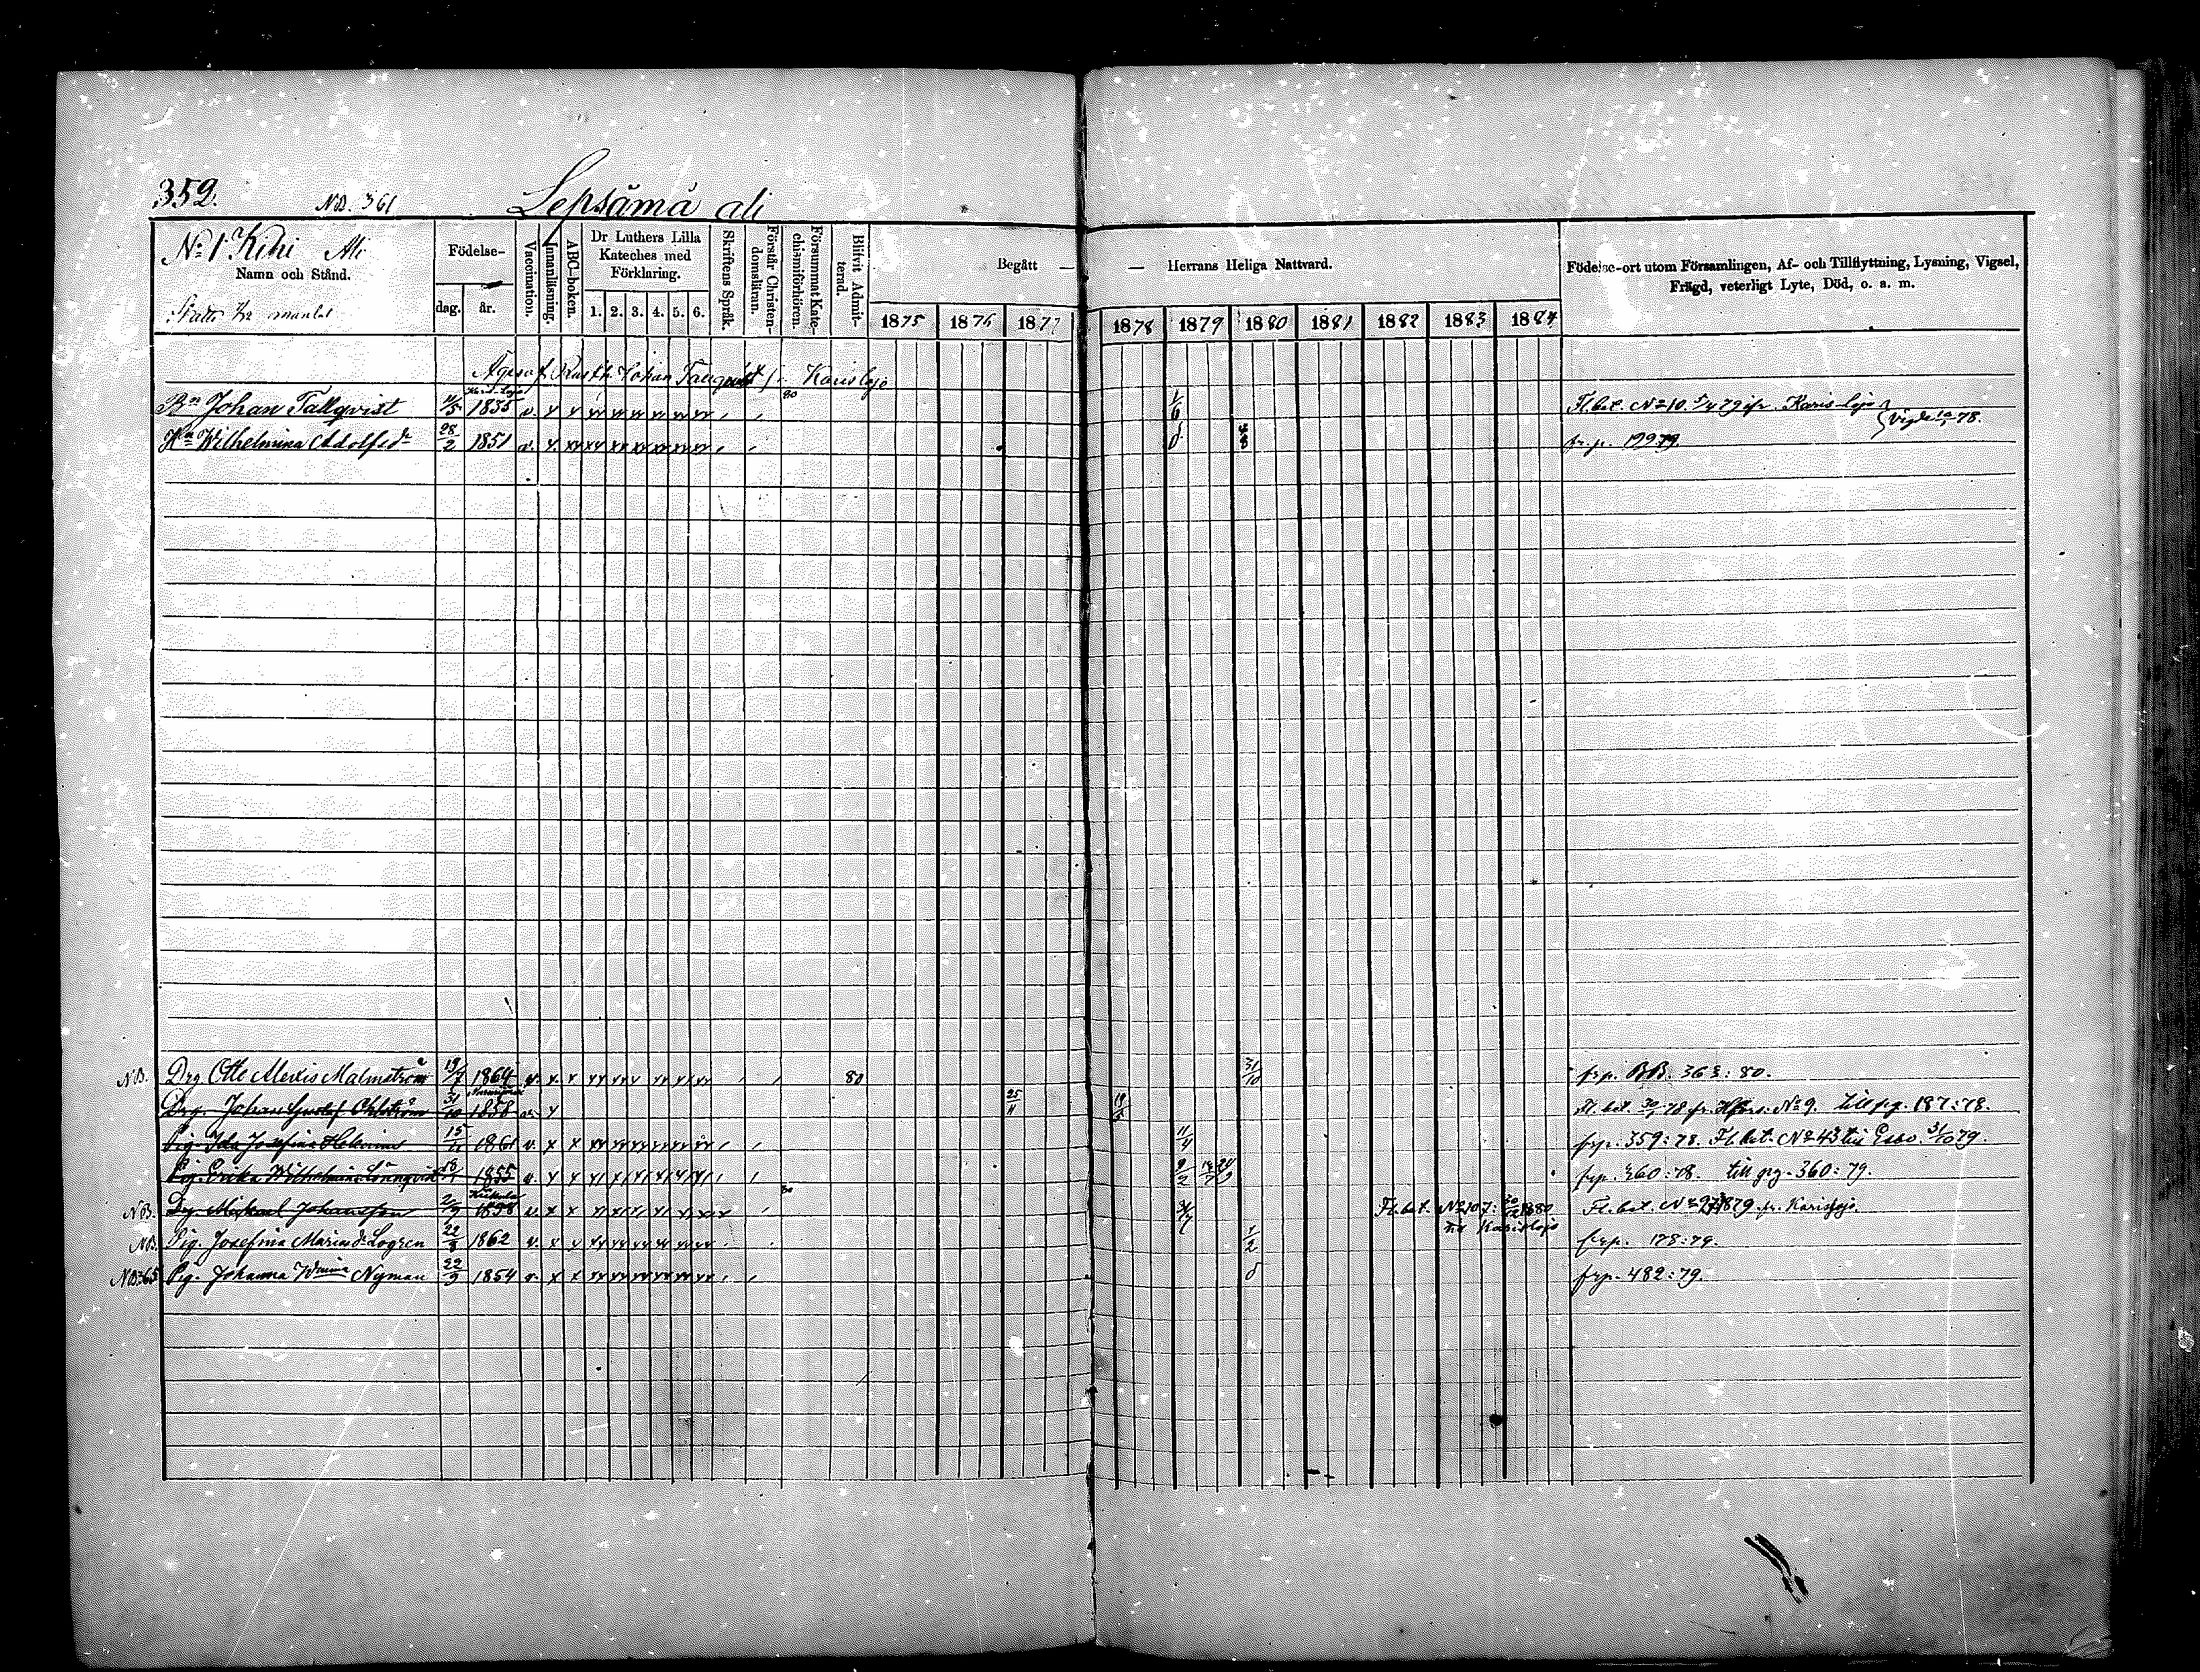 352.
NB. 361
Lepsämä ali
No 1 Kihi Ali
Namn och Stånd.
mantal
Födelse-
dag.
år.
Vaccination.
Innanläsning.
ABC-boken.
Dr Luthers Lilla
Kateches med
Förklaring.
1. 2. 3. 4. 5. 6.
Skriftens Språk.
Förstår Christen-
domsläran.
Försummat Kate-
chismiförhören.
Blifvit Admit-
terad.
Begått — — Herrans Heliga Nattvard.
1875 1876 1877 1878 1879 1880 1881 1882 1883 1884
Födelse-ort utom Församlingen, Af- och Tillflyttning, Lysning, Vigsel,
Frägd, veterligt Lyte, Död, o. a. m.
Johan Karislojo
Bn Johan Tallqvist 1835 v. 1/6 Fl.bet. No 10 79 fr. Karislojo
Hn Wilhelmina Adolfsdr 28/2 1851 v. fr. p. 199 79. 78.
NB. Drg Otto Alexis Malmström 19/7 1864 v. 80 31/10 frp. BB. 363: 80.
Drg. Johan Gustaf Ohlström 31/10 1858 25/11 Fl. bet. 78 fr. Hfors. No 9. till pg. 187:78.
Pig. Ida Josefina Helenius 1861 v. 11/4 frp. 359: 78. Fl.bet. No 43 till Esbo 31/10 79.
Pig. Erika Wilhelmina Lönnqvist 1855 v. 9/2 frp. 360: 78. till pg. 360: 79.
NB. Drg. Mickael Johansson v. Fl.bet. No 107: 1880 Fl.bet. No 1879 fr. Karislojo
till Karislojo
NB. Pig. Josefina Mariasdr Logren 22/8 1862 v. 1/2 frp. 178: 79.
NB: 65 Pig. Johanna Wmina Nyman 22/9 1854 v. frp. 482: 79.